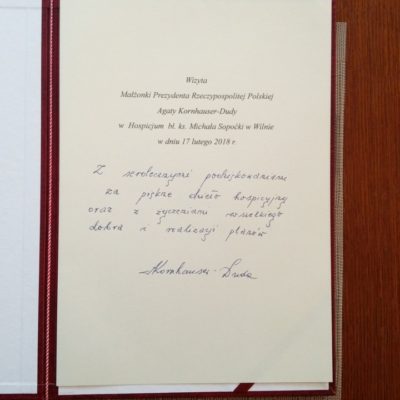 Wizyta
Małżonki Prezydenta Rzeczypospolitej Polskiej
Agaty Kornhauser-Dudy
w Hospicjum bł. ks. Michała Sopoćki w Wilnie
w dniu 17 lutego 2018 r.
Z serdecznymi podziękowaniami
za piękne dzieło hospicyjne
oraz z życzeniami wszelkiego
dobra i realizacji planów
AKornhauser-Duda